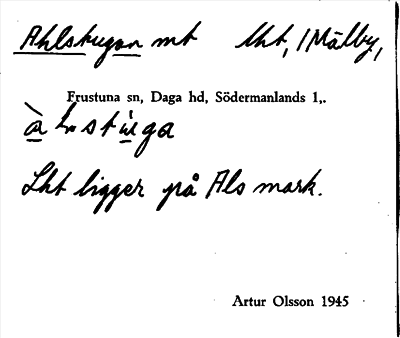 Ahlstugan mt lht, / Mälby,
Frustuna sn, Daga hd, Södermanlands l,.
Lht ligger på Als mark.
Artur Olsson 1945